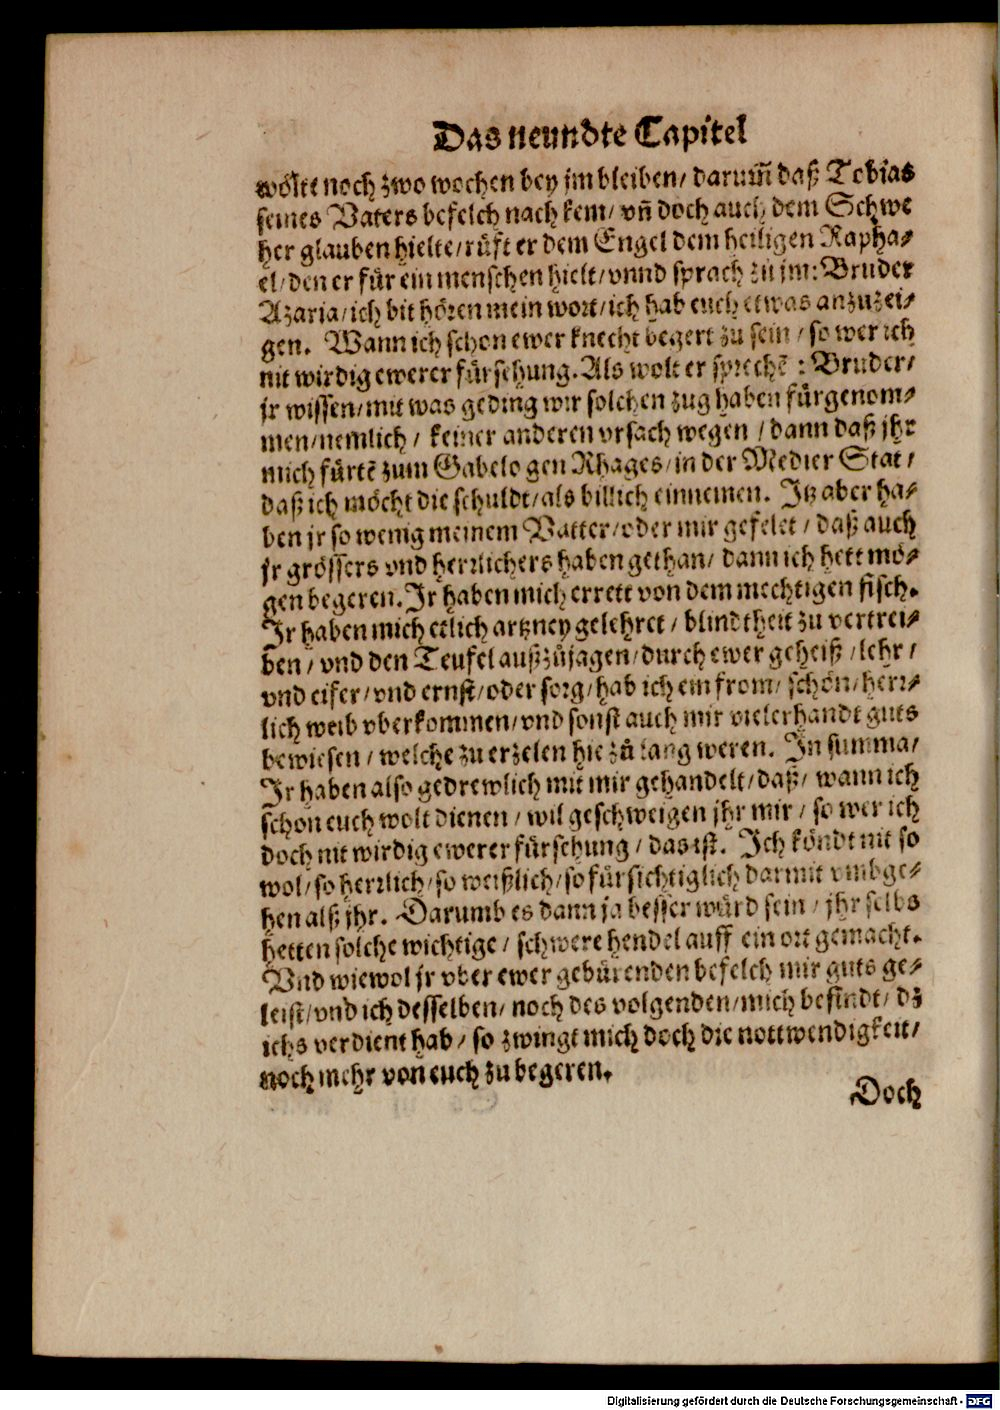 Das neundte Capitel
wölte noch zwo wochen bey jm bleiben/ darum̃ daß Tobias
seines Vaters befelch nach kem/ vñ doch auch dem Schwe
her glauben hielte/ rüfft er dem Engel dem heiligen Rapha-
el/ den er für ein menschen hielt/ vnnd sprach zů jm: Bruder
Azaria/ ich bit hören mein wort/ ich hab euch etwas anzuzei-
gen. Wann ich schon ewer knecht begert zu sein/ so wer ich
nit wirdig ewerer fürsehung. Als wolt er sprechẽ: Bruder/
jr wissen/ mit was geding wir solchen zug haben fürgenom-
men/ nemlich/ keiner anderen vrsach wegen/ dann daß jhr
mich fürtẽ zum Gabelo gen Rhages/ in der Medier Stat/
daß ich möcht die schuldt/ als billich einnemen. Itz aber ha-
ben jr so wenig meinem Vatter/ oder mir gefelet/ daß auch
jr grössers vnd herrlichers haben gethan/ dann ich hett mö-
gen begeren. Ir haben mich errett von dem mechtigen fisch.
Ir haben mich etlich artzney gelehret/ blindtheit zu vertrei-
ben/ vnd den Teufel außzůjagen/ durch ewer geheiß/ lehr/
vnd eifer/ vnd ernst/ oder sorg/ hab ich ein from/ schön/ herr-
lich weib vberkommen/ vnd sonst auch mir vielerhandt guts
bewiesen/ welche zu erzelen hie zů lang weren. In summa/
Ir haben also gedrewlich mit mir gehandelt/ daß/ wann ich
schon euch wolt dienen/ wil geschweigen jhr mir/ so wer ich
doch nit wirdig ewerer fürsehung/ das ist. Ich köndt nit so
wol/ so herrlich/ so weißlich/ so fürsichtiglich darmit vmbge-
hen alß jhr. Darumb es dann ja besser würd sein/ jhr selbs
hetten solche wichtige/ schwere hendel auff ein ort gemacht.
Vnd wiewol jr vber ewer gebürenden befelch mir guts ge-
leist/ vnd ich desselben/ noch des volgenden/ mich befindt/ dz
ichs verdient hab/ so zwingt mich doch die nottwendigkeit/
noch mehr von euch zu begeren.
Doch
Digitalisierung gefördert durch die Deutsche Forschungsgemeinschaft - DFG